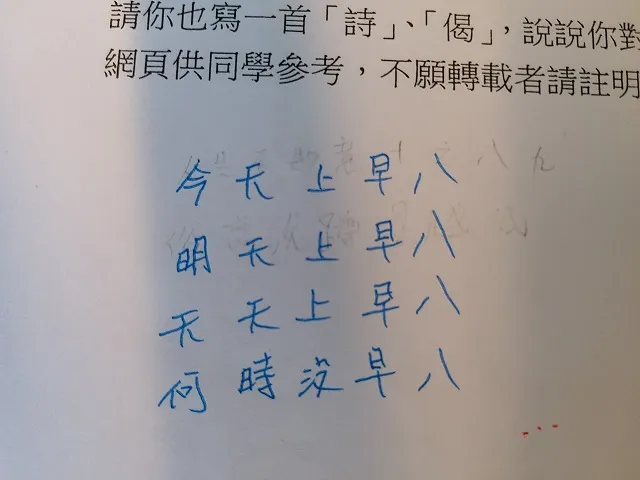 請你也寫一首「詩」、「偈」，說說你對
網頁供同學參考，不願轉載者請註明
今天上早八
明天上早八
天天上早八
何時沒早八
...